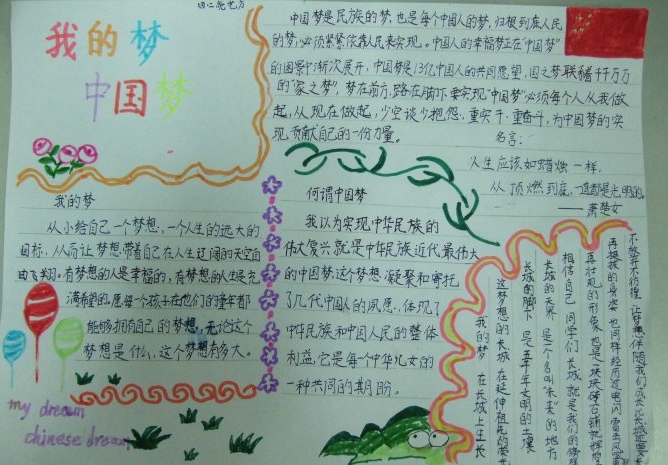 四二
我的梦
中国梦
中国梦是民族的梦,也是每个中国人的梦,归根到底人民
的梦,必须紧紧依靠人民来实现。中国人的幸福梦正在"中国梦"
的图景中渐次展开,中国梦是13亿中国人的共同愿望,国之梦联稽千千万万
的"家之梦",梦在前方,路在脚下.要实现"中国梦"必须每个人从我做
起,从现在做起,少空谈少抱怨.重实干、重奋斗,为中国梦的实
现,贡献自己的一份力量。
名言:
人生应该如蜡烛一样,
从顶燃到底,一直都是光明的。
——萧楚女
我的梦
从小给自己一个梦想,一个人生的远大的
目标,从而让梦想带着自己在人生辽阔的天空自
由飞翔。有梦想的人是幸福的,有梦想的人生是充
满希望的。愿每个孩子在他们的童年都
能够拥有自己的梦想,无论这个
梦想是什么,这个梦想有多大。
何谓中国梦
我以为实现中华民族的
伟大复兴就是中华民族近代最伟大
的中国梦这个梦想凝聚和寄托
了几代中国人的夙愿、体现了
中华民族和中国人民的整体
利益,它是每个中华儿女的
一种共同的期盼。
不放弃不彷徨 让梦想伴随我们成长
再挺拔的身姿 也同样经历过电闪雷击风
再壮观的形象 也是一块块砖石铺就
相信自己 同学们 长城就是我们的
长城的天界 是个名叫"未来"的地方
长城的脚下 是五千年文明的土壤
这梦想的长城 在延伸祖先的
我的梦 在长城上生长
my dream
chinese dream